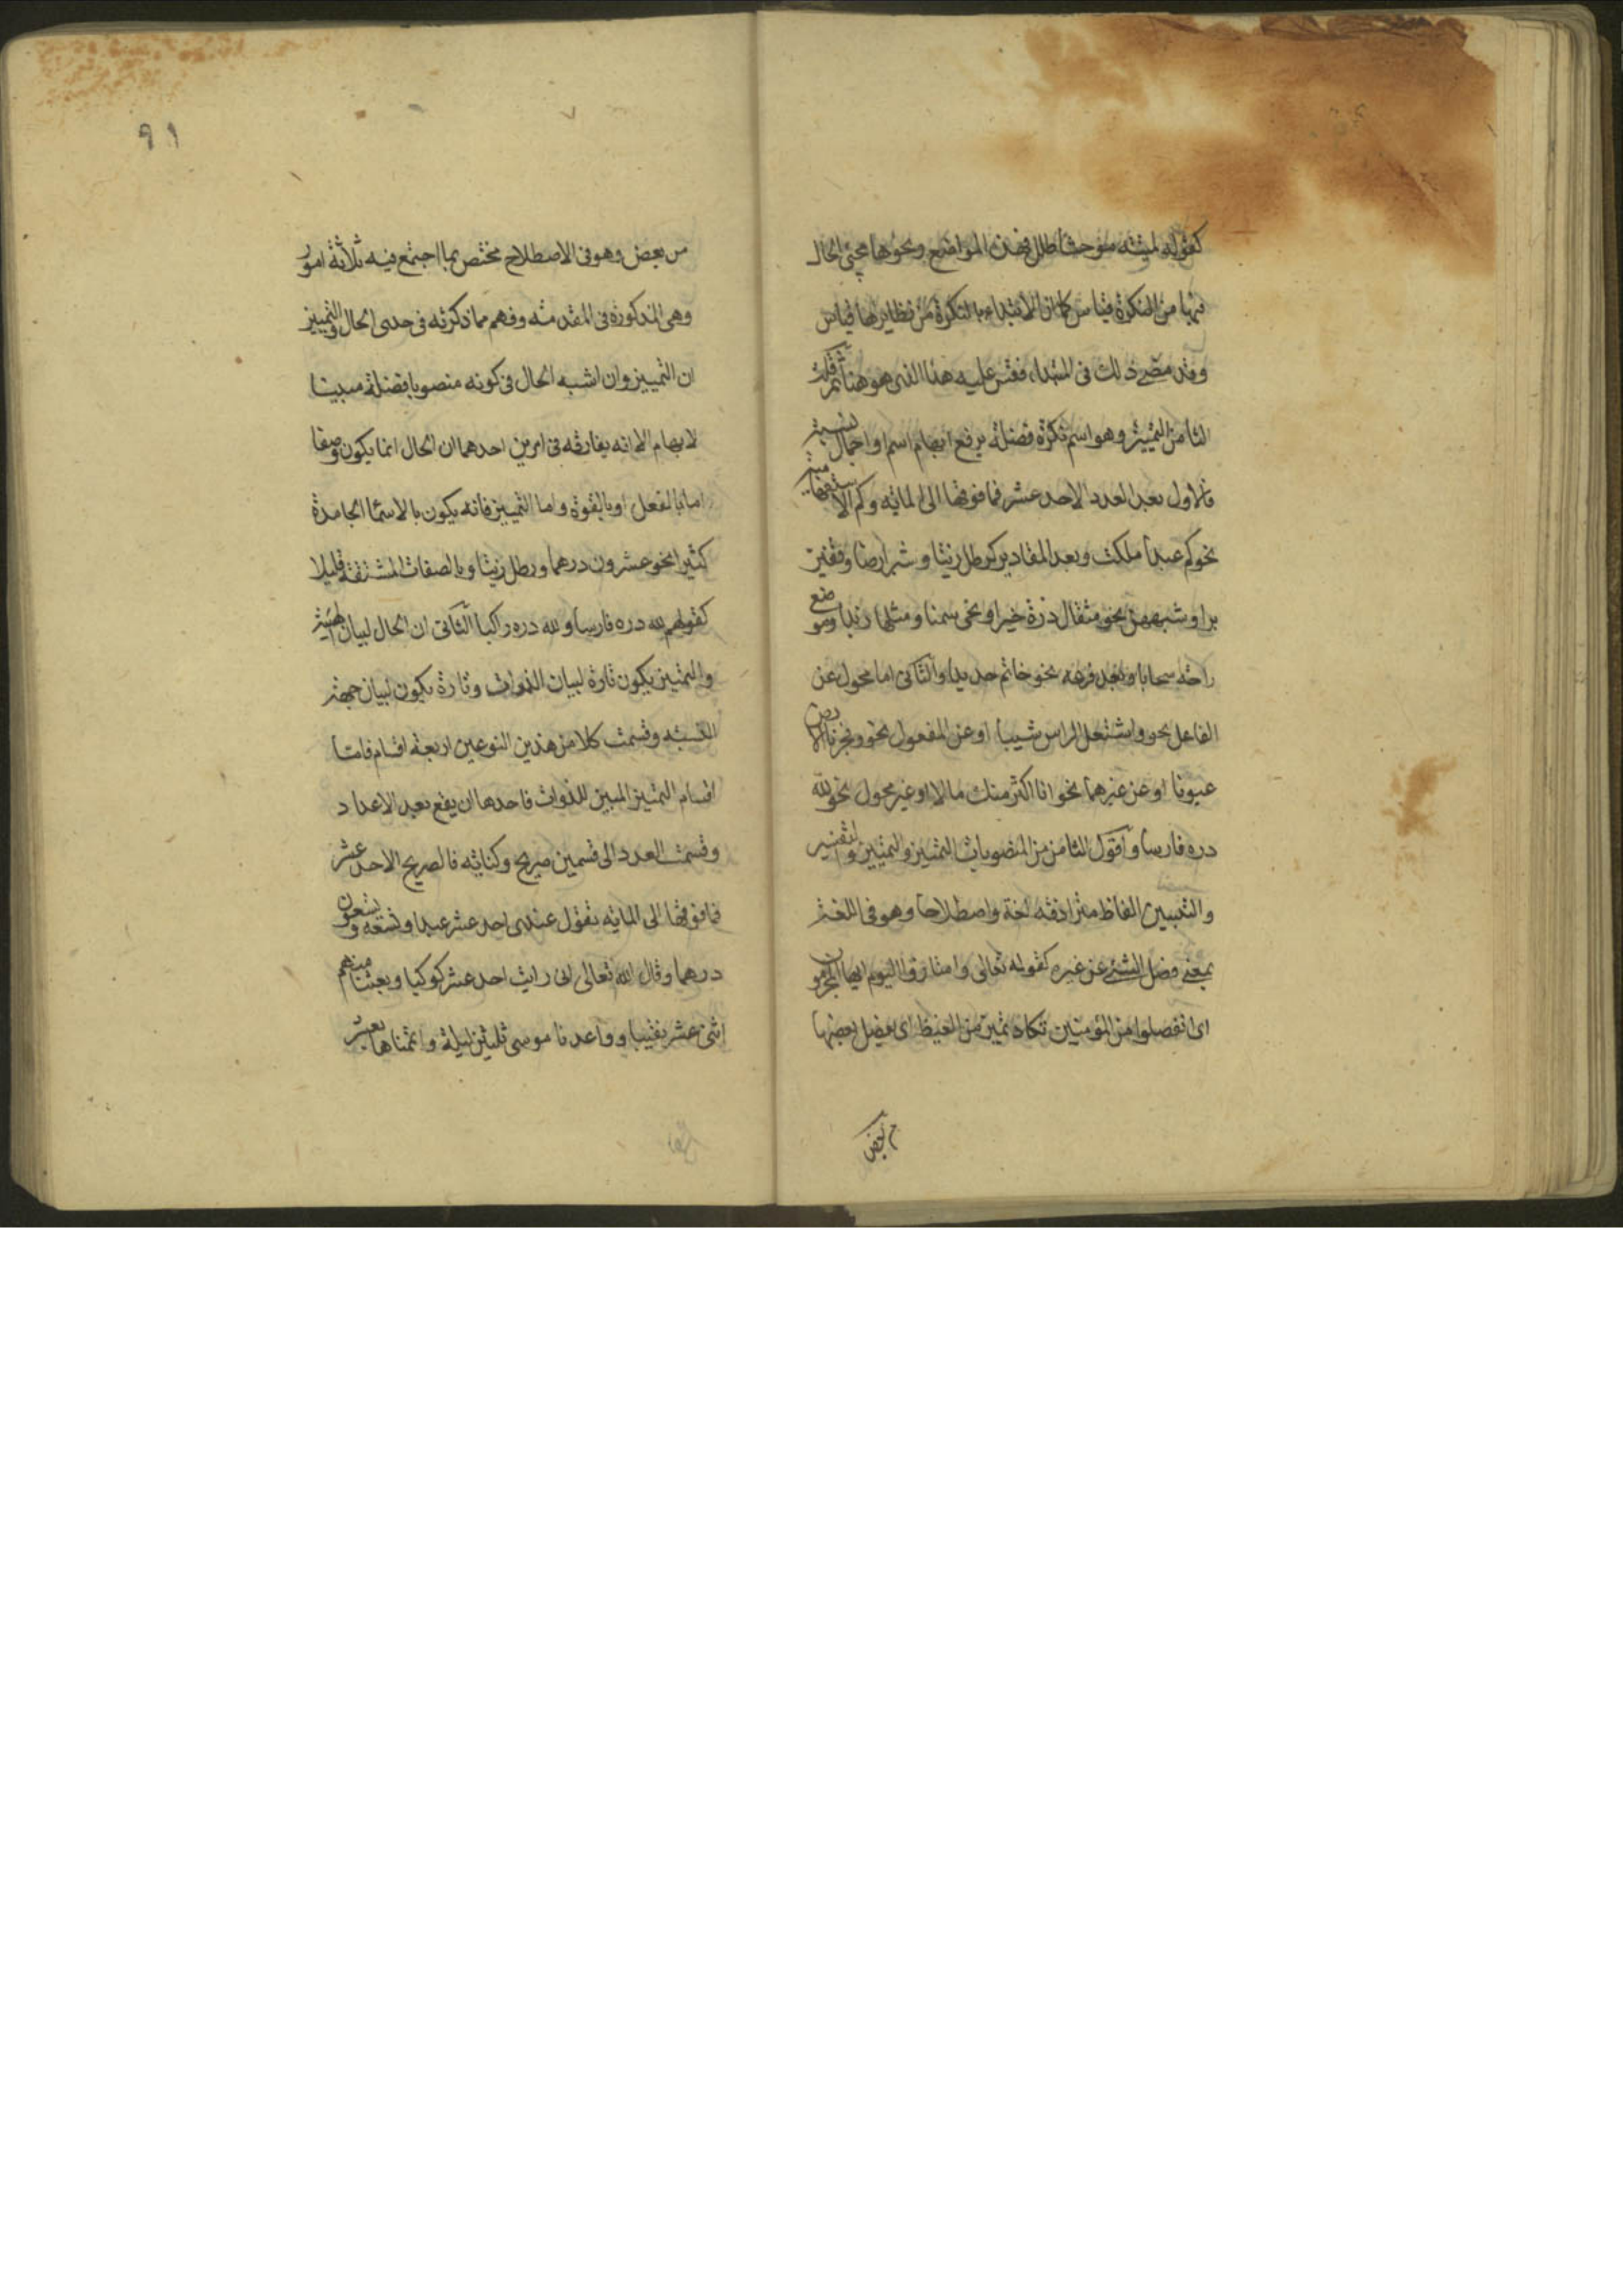 كقوله لمية موحشا طلل فهذه المواضع ونحوها مجئ الحال
فيها من النكرة قياس كما ان الابتداء بالنكرة من نظايرها قياس
وقد مضى ذلك فى المبتداء فقس عليه هذا الذى هو هنا ثم قلت
الثامن التمييز وهو اسم نكرة فضلة يرفع ابهام اسم او اجمال نسبة
فالاول بعد العدد الاحد عشر فما فوقها الى الماية وكم الاستفهامية
نحو كم عبدا ملكت وبعد المقادير كرطل زيتا وشبر ارضا وقفيز
برا وشبههن نحو مثقال ذرة خيرا ونحى سمنا ومثلها زبدا وموضع
راحة سحابا وبعد فرعه نحو خاتم حديدا والثانى اما محول عن
الفاعل نحو واشتعل الراس شيبا او عن المفعول نحو وفجرنا الارض
عيونا او عن غيرهما نحو انا اكثر منك مالا او غير محول نحو لله
دره فارسا واقول الثامن من المنصوبات التمييز والتمييز والتفسير
والتبيين الفاظ مترادفة لغة واصطلاحا وهو فى اللغة
بمعنى فصل الشئ عن غيره كقوله تعالى وامتازوا اليوم ايها المجرمون
اى انفصلوا من المؤمنين تكاد تميز من الغيظ اى ينفصل بعضها
من بعض
٩١
من بعض وهو فى الاصطلاح مختص بما اجتمع فيه ثلاثة امور
وهى المذكورة فى المقدمة وفهم مما ذكرته فى حدى الحال والتمييز
ان التمييز وان اشبه الحال فى كونه منصوبا فضلة مبينا
لابهام الا انه يفارقه فى امرين احدهما ان الحال انما يكون وصفا
اما بالفعل او بالقوة واما التمييز فانه يكون بالاسما الجامدة
كثيرا نحو عشرون درهما ورطل زيتا وبالصفات المشتقة قليلا
كقولهم لله دره فارسا ولله دره راكبا الثانى ان الحال لبيان الهيئة
والتمييز يكون تارة لبيان الذوات وتارة يكون لبيان جهة
النسبه وقسمت كلا من هذين النوعين اربعة اقسام فاما
اقسام التمييز المبين للذوات فاحدها ان يقع بعد الاعداد
وقسمت العدد الى قسمين صريح وكناية فالصريح الاحد عشر
فما فوقها الى الماية تقول عندى احد عشر عبدا وتسعه وتسعون
درهما وقال الله تعالى انى رايت احد عشر كوكبا وبعثنا منهم
اثنى عشر نقيبا وواعدنا موسى ثلثين ليلة واتمناها بعشر